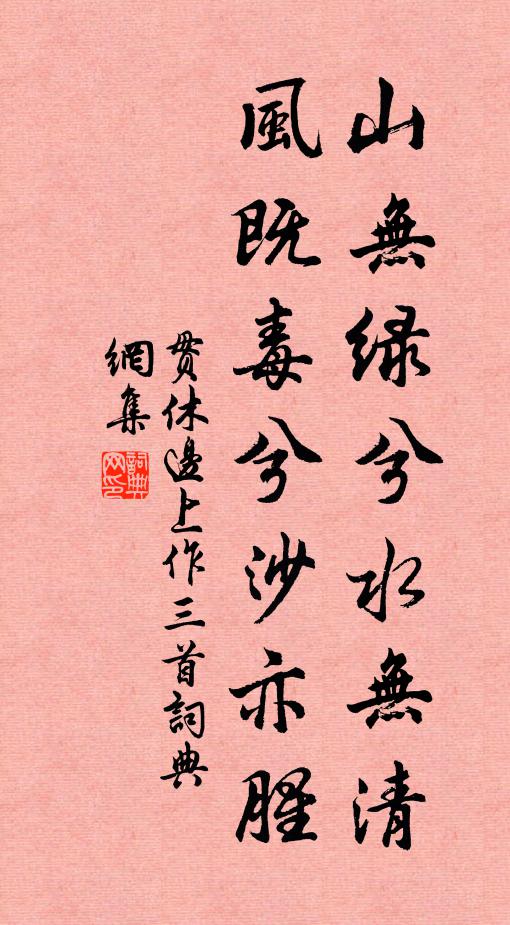 山無綠兮水無清
風既毒兮沙亦腥
貫休邊上作三首詞典
網集
詞典网印